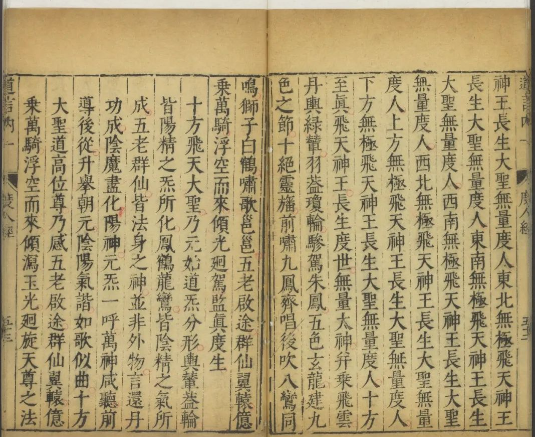 度人經
神王長生大聖無量度人東北無極飛天神王
長生大聖無量度人東南無極飛天神王長生
大聖無量度人西南無極飛天神王長生大聖
無量度人西北無極飛天神王長生大聖無量
度人上方無極飛天神王長生大聖無量度人
下方無極飛天神王長生大聖無量度人十方
至眞飛天神王長生度世無量大神幷乘飛雲
丹輿綠輦羽蓋瓊輪驂駕朱鳳五色玄龍建九
色之節十絕靈旛前嘯九鳳齊唱後吹八鸞同
鳴獅子白鶴嘯歌邕邕五老啟途群仙翼轅億
乘萬騎浮空而來傾光廻駕監眞度生
十方飛天大聖乃元始道炁分形輿輦蓋輪
皆陽精之炁所化鳳鶴龍鸞皆陰精之氣所
成五老群仙皆法身之神並非外物言還丹
功成陰魔盡化陽神元炁一呼萬神咸聽前
導後從升舉朝元陰陽氣諧如歌似曲十方
大聖道高位尊乃感五老啟途群仙翼轅億
乘萬騎浮空而來傾瀉玉光廻旋天尊之法
度人經